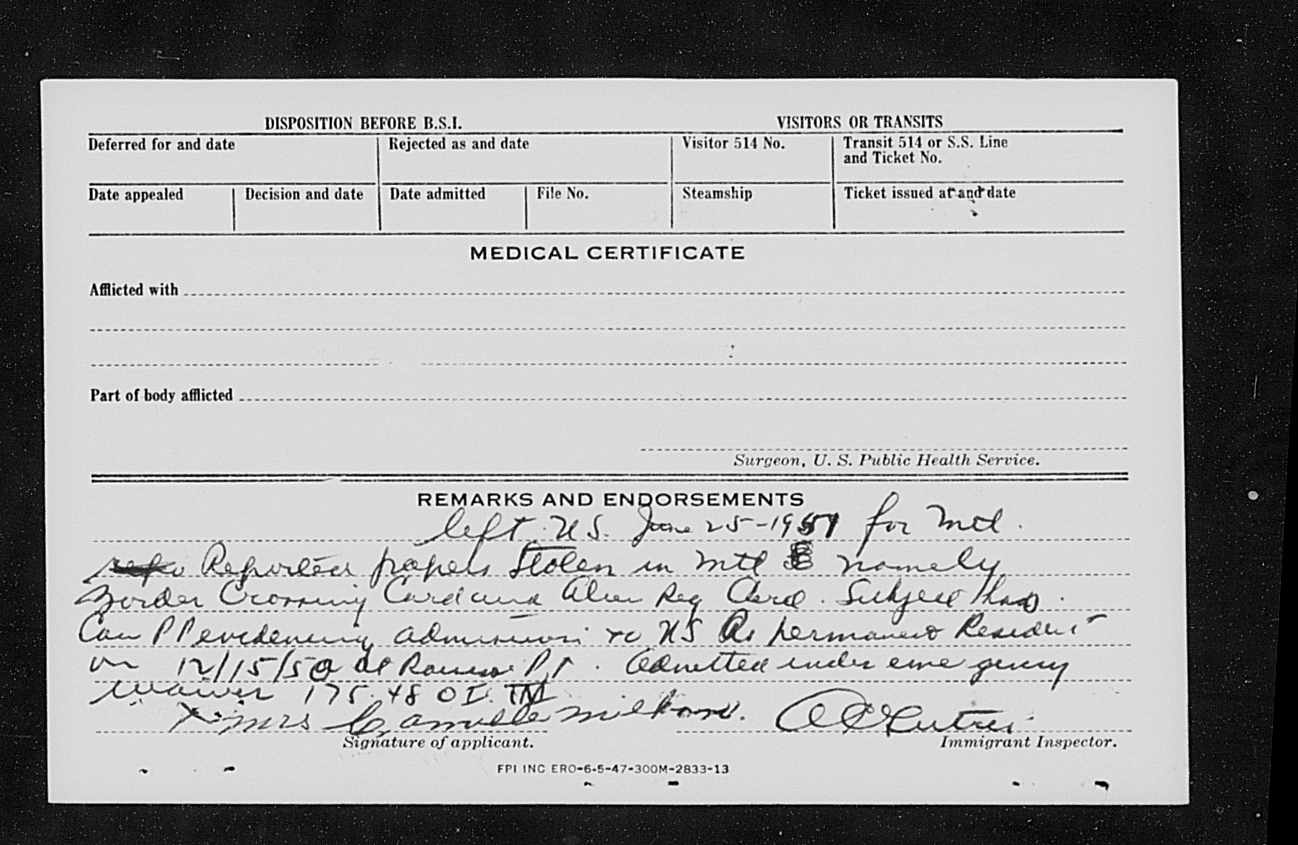 DISPOSITION BEFORE B.S.I.
VISITORS OR TRANSITS
Deferred for and date
Rejected as and date
Visitor 514 No.
Transit 514 or S.S. Line
and Ticket No.
Date appealed
Decision and date
Date admitted
File No.
Steamship
Ticket issued at and date
MEDICAL CERTIFICATE
Afflicted with
Part of body afflicted
Surgeon, U. S. Public Health Service.
REMARKS AND ENDORSEMENTS
left US. June 25-1951 for Mtl.
Reported papers Stolen in Mtl namely
Border Crossing Card and Alien Reg Card. Subject has
Can PP evidencing admission to US As permanent Resident
on 12/15/50 at Rouses Pt. Admitted under emergency
waiver 175.48
x Mrs Camille
Signature of applicant.
Immigrant Inspector.
FPI INC ERO-6-5-47-300M-2833-13